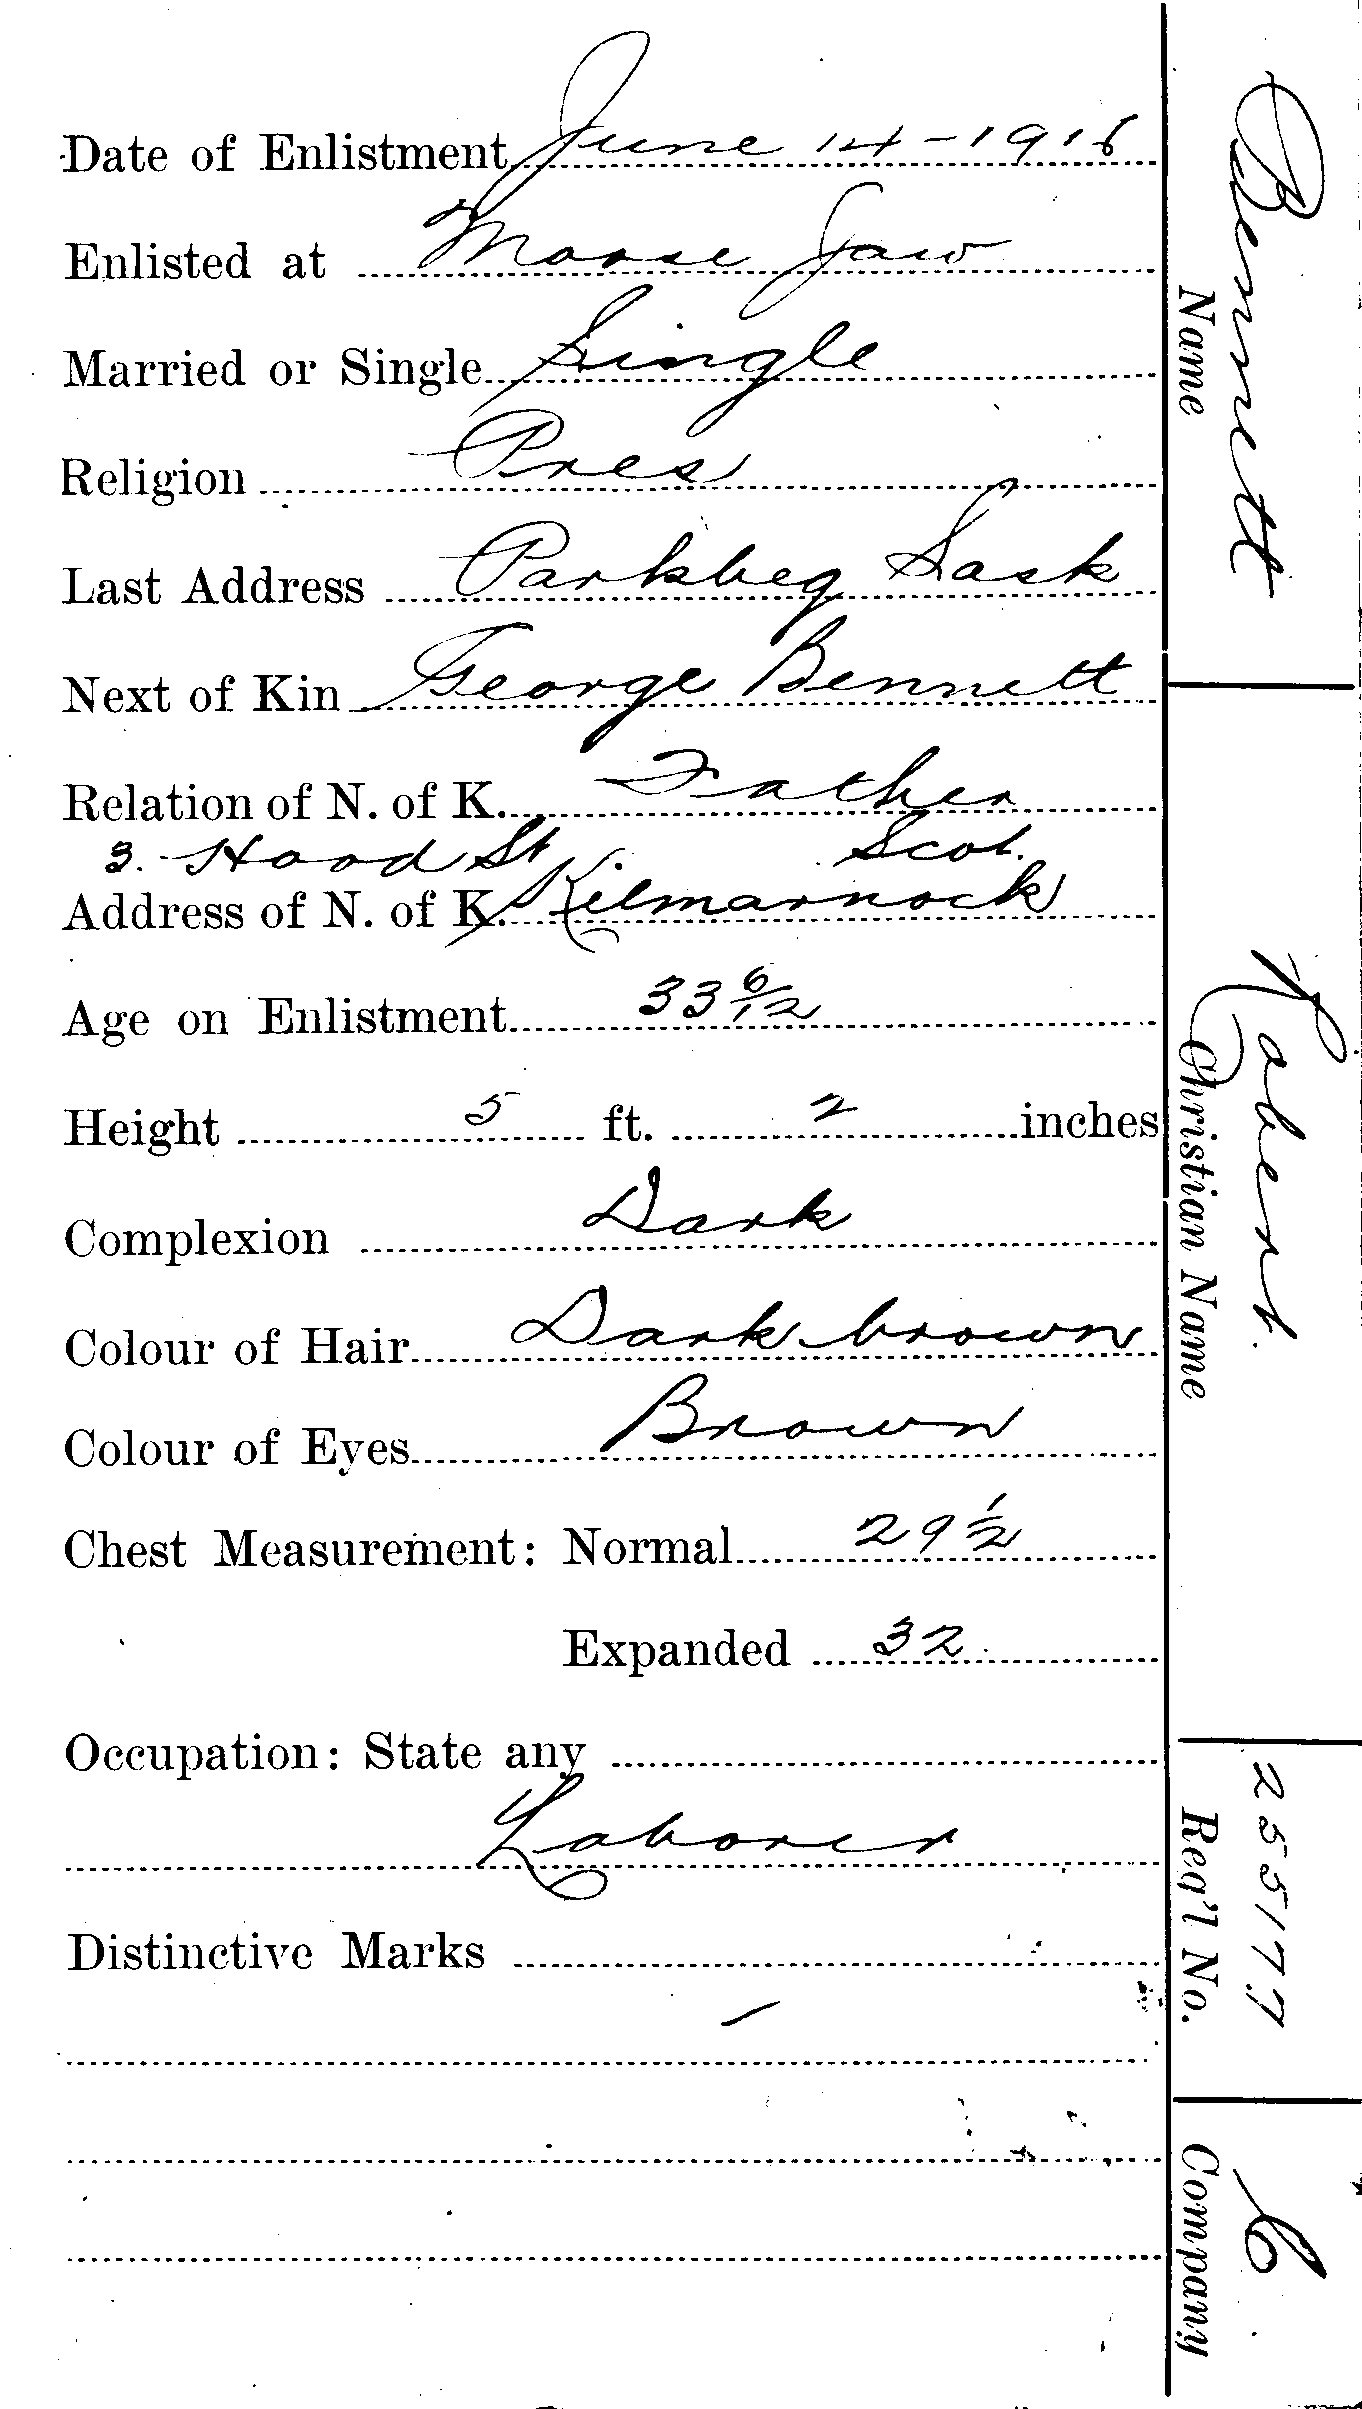 Date of Enlistment June 14-1916
Enlisted at Moose Jaw
Married or Single Single
Religion Pres
Last Address Parkbeg Sask
Next of Kin George Bennett
Relation of N. of K. Father
3. Hood St Scot.
Address of N. of K. Kilmarnock
Age on Enlistment 33 6/12
Height 5 ft. 2 inches
Complexion Dark
Colour of Hair Dark brown
Colour of Eyes Brown
Chest Measurement: Normal 29 1/2
Expanded 32
Occupation: State any
Laborer
Distinctive Marks
-
Bennett
Name
Robert.
Christian Name
255177
Reg'l No.
C
Company